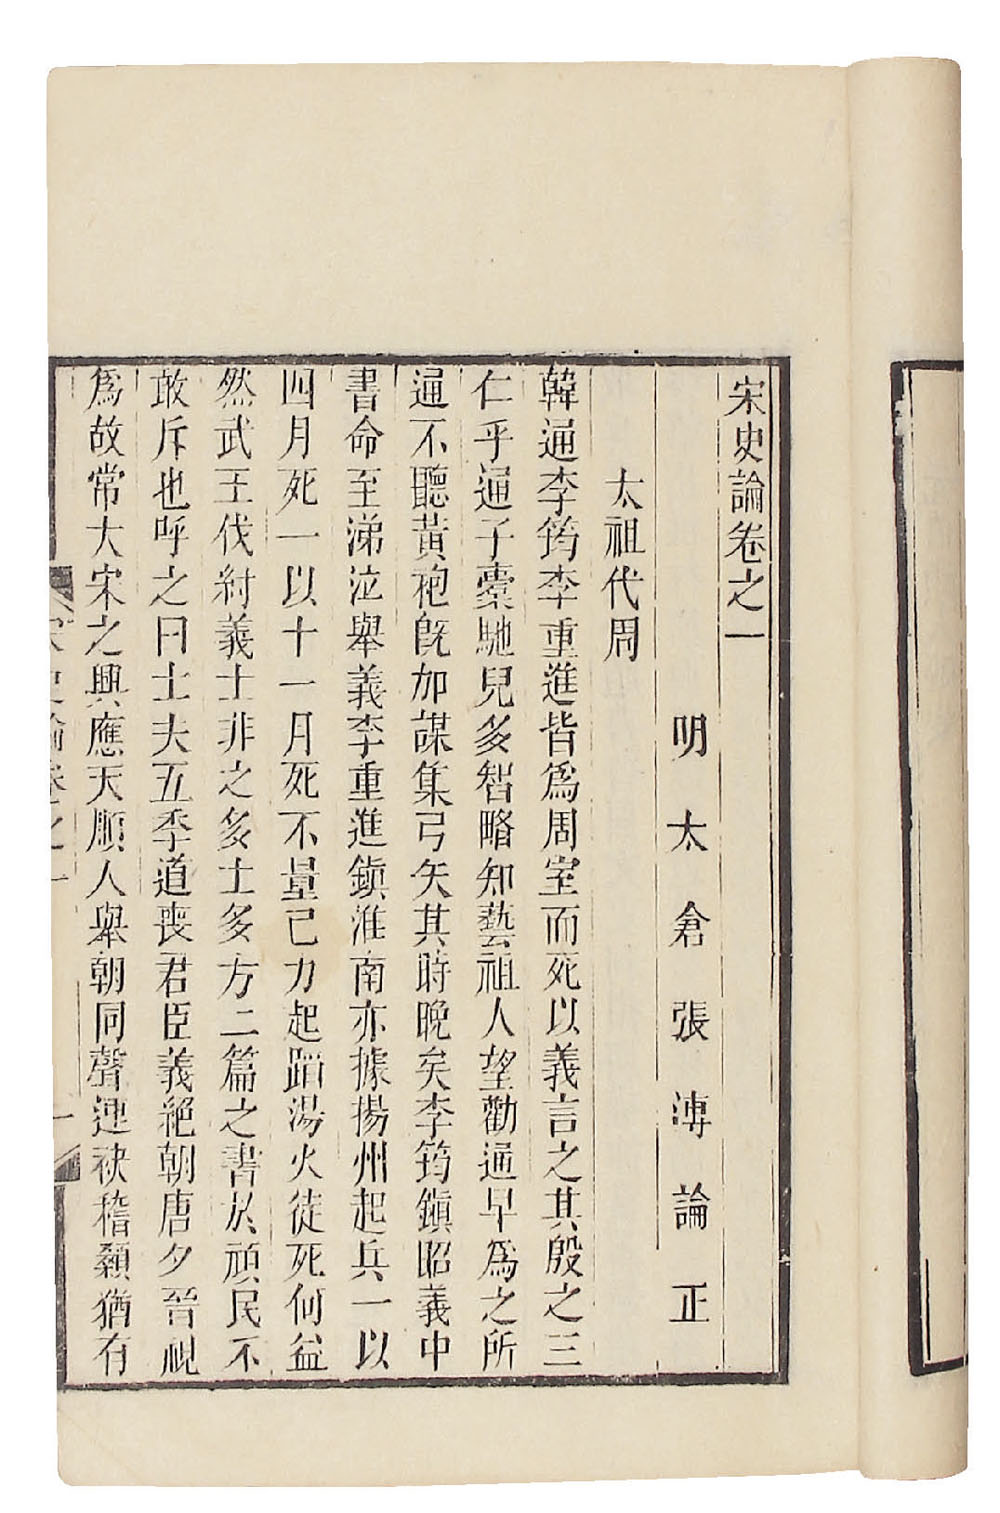 宋史論卷之一
明太倉張溥論正
太祖代周
韓通李筠李重進皆爲周室而死以義言之其殷之三
仁乎通子橐馳兒多智略知藝祖人望勸通早爲之所
通不聽黃袍旣加謀集弓矢其時晚矣李筠鎭昭義中
書命至涕泣舉義李重進鎭淮南亦據揚州起兵一以
四月死一以十一月死不量己力起蹈湯火徒死何益
然武王伐紂義士非之多士多方二篇之書於頑民不
敢斥也呼之曰士夫五季道喪君臣義絕朝唐夕晉視
爲故常大宋之興應天順人舉朝同聲連袂稽顙猶有
宋史論卷之一
一